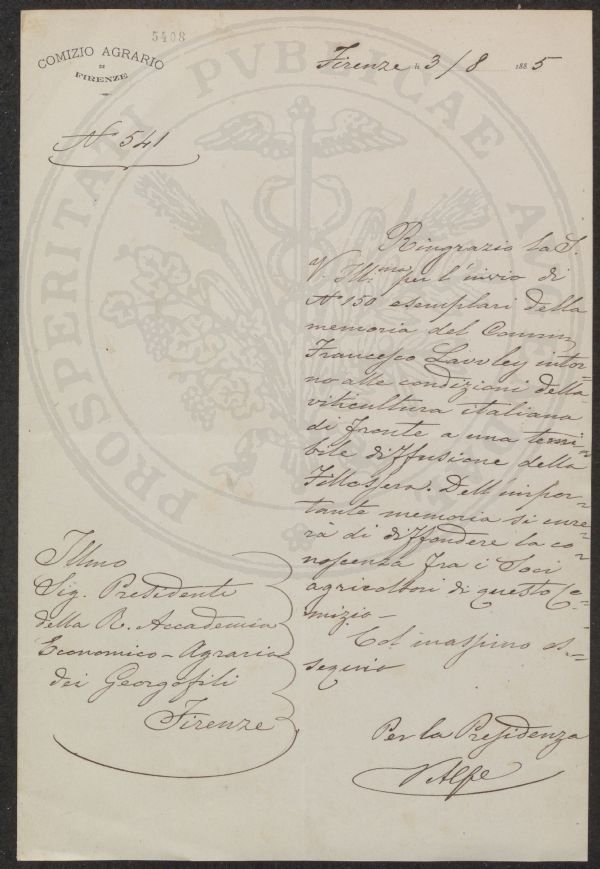 5408
COMIZIO AGRARIO
DI
FIRENZE
Firenze li 3/8 1885
N° 541
Ringrazio la S.
V. Ill.ma per l'invio di
N° 150 esemplari della
memoria del Comm
Francesco Lawley intor=
no alle condizioni della
viticultura italiana
di fronte a una temi=
bile diffusione della
Fillossera. Dell'impor=
tante memoria si cure=
rà di diffondere la co=
noscenza fra i Soci
agricoltori di questo Co=
mizio -
Col massimo os=
sequio
Per la Presidenza
V Alpe
Illmo
Sig. Presidente
della R. Accademia
Economico - Agraria
dei Georgofili
Firenze
PROSPERITATI PVBLICAE AV